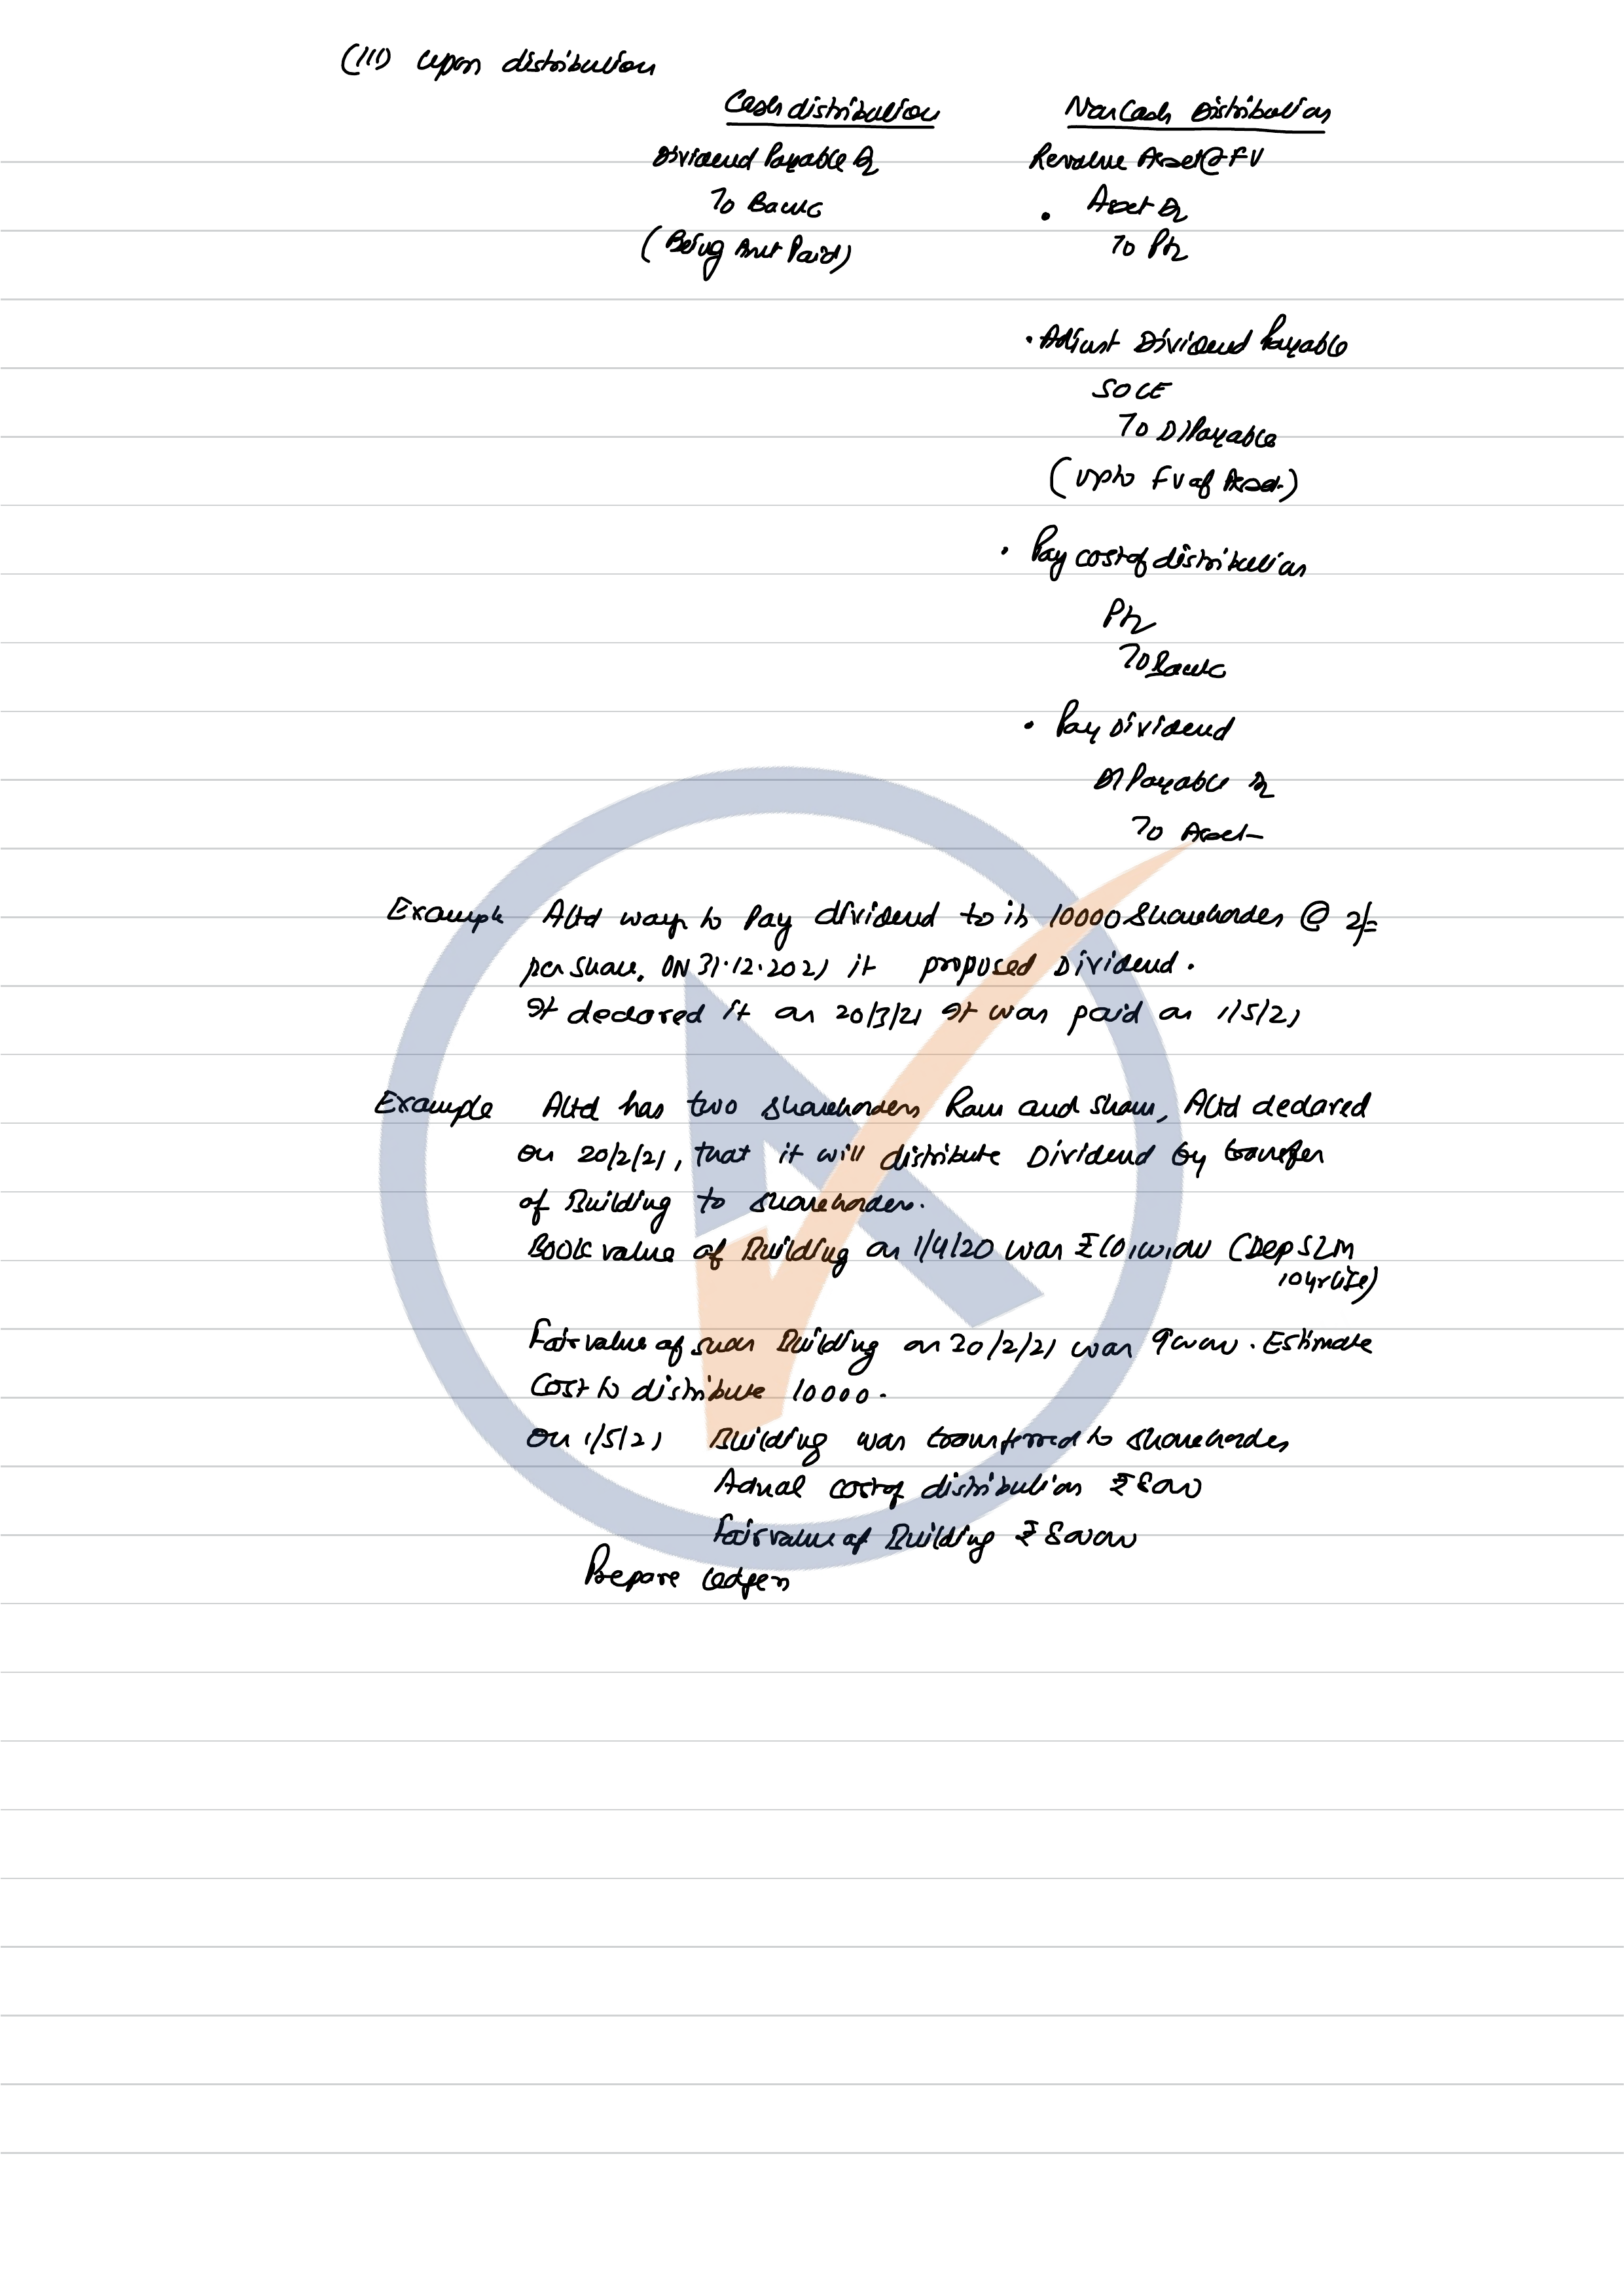 (III) upon distribution
Cash distribution
Dividend Payable Dr
To Bank
(Being Amt Paid)
Non Cash Distribution
Revalue Asset @ FV
• Asset Dr
To P/L
• Adjust Dividend Payable
SOCE
To D/Payable
(upto FV of Asset)
• Pay cost of distribution
P/L
To Bank
• Pay Dividend
D/Payable Dr
To Asset
Example A Ltd to Pay dividend to its 10000 Shareholders @ 2/=
per share. ON 31.12.2021 it proposed Dividend.
It declared it on 20/3/21 It was paid on 1/5/21
Example A Ltd has two shareholders Ram and Sham, A Ltd declared
on 20/2/21, that it will distribute Dividend by transfer
of Building to shareholders.
Book value of Building on 1/4/20 was ₹ (Dep SLM
10 yr life)
Fair value of such Building on 20/2/21 was . Estimate
Cost to distribute 10000.
On 1/5/21 Building was transferred to shareholders
Actual cost of distribution ₹
Fair value of Building ₹
Prepare ledgers